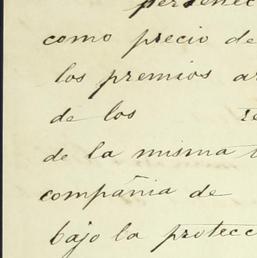 pertenec
como precio de
los premios a
de los re
de la misma
compañia de
bajo la protecc